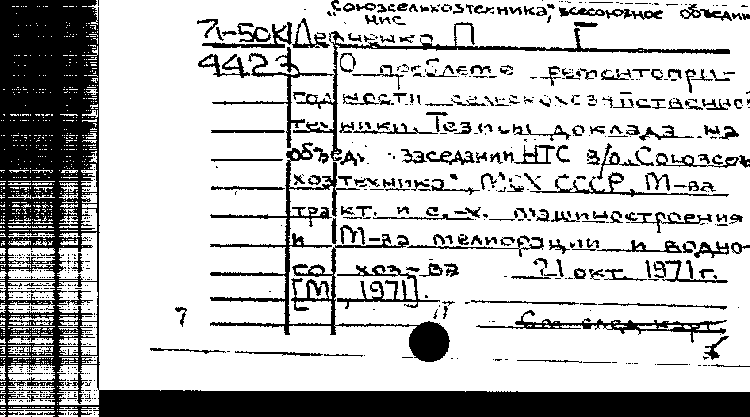 "Союзсельхозтехника," всесоюзное объедин
ние
71-50К П Г
4423 О проблеме ремонтопри-
годности сельскохозяйственной
техники. Тезисы доклада на
объед. заседании НТС В/о „Союзсель
хозтехника", МСХ СССР, М-ва
тракт. и с.-х. машиностроения
и М-ва мелиорации и водно-
го хоз-ва 21 окт. 1971 г.
[М, 1971].
7
См след. карт